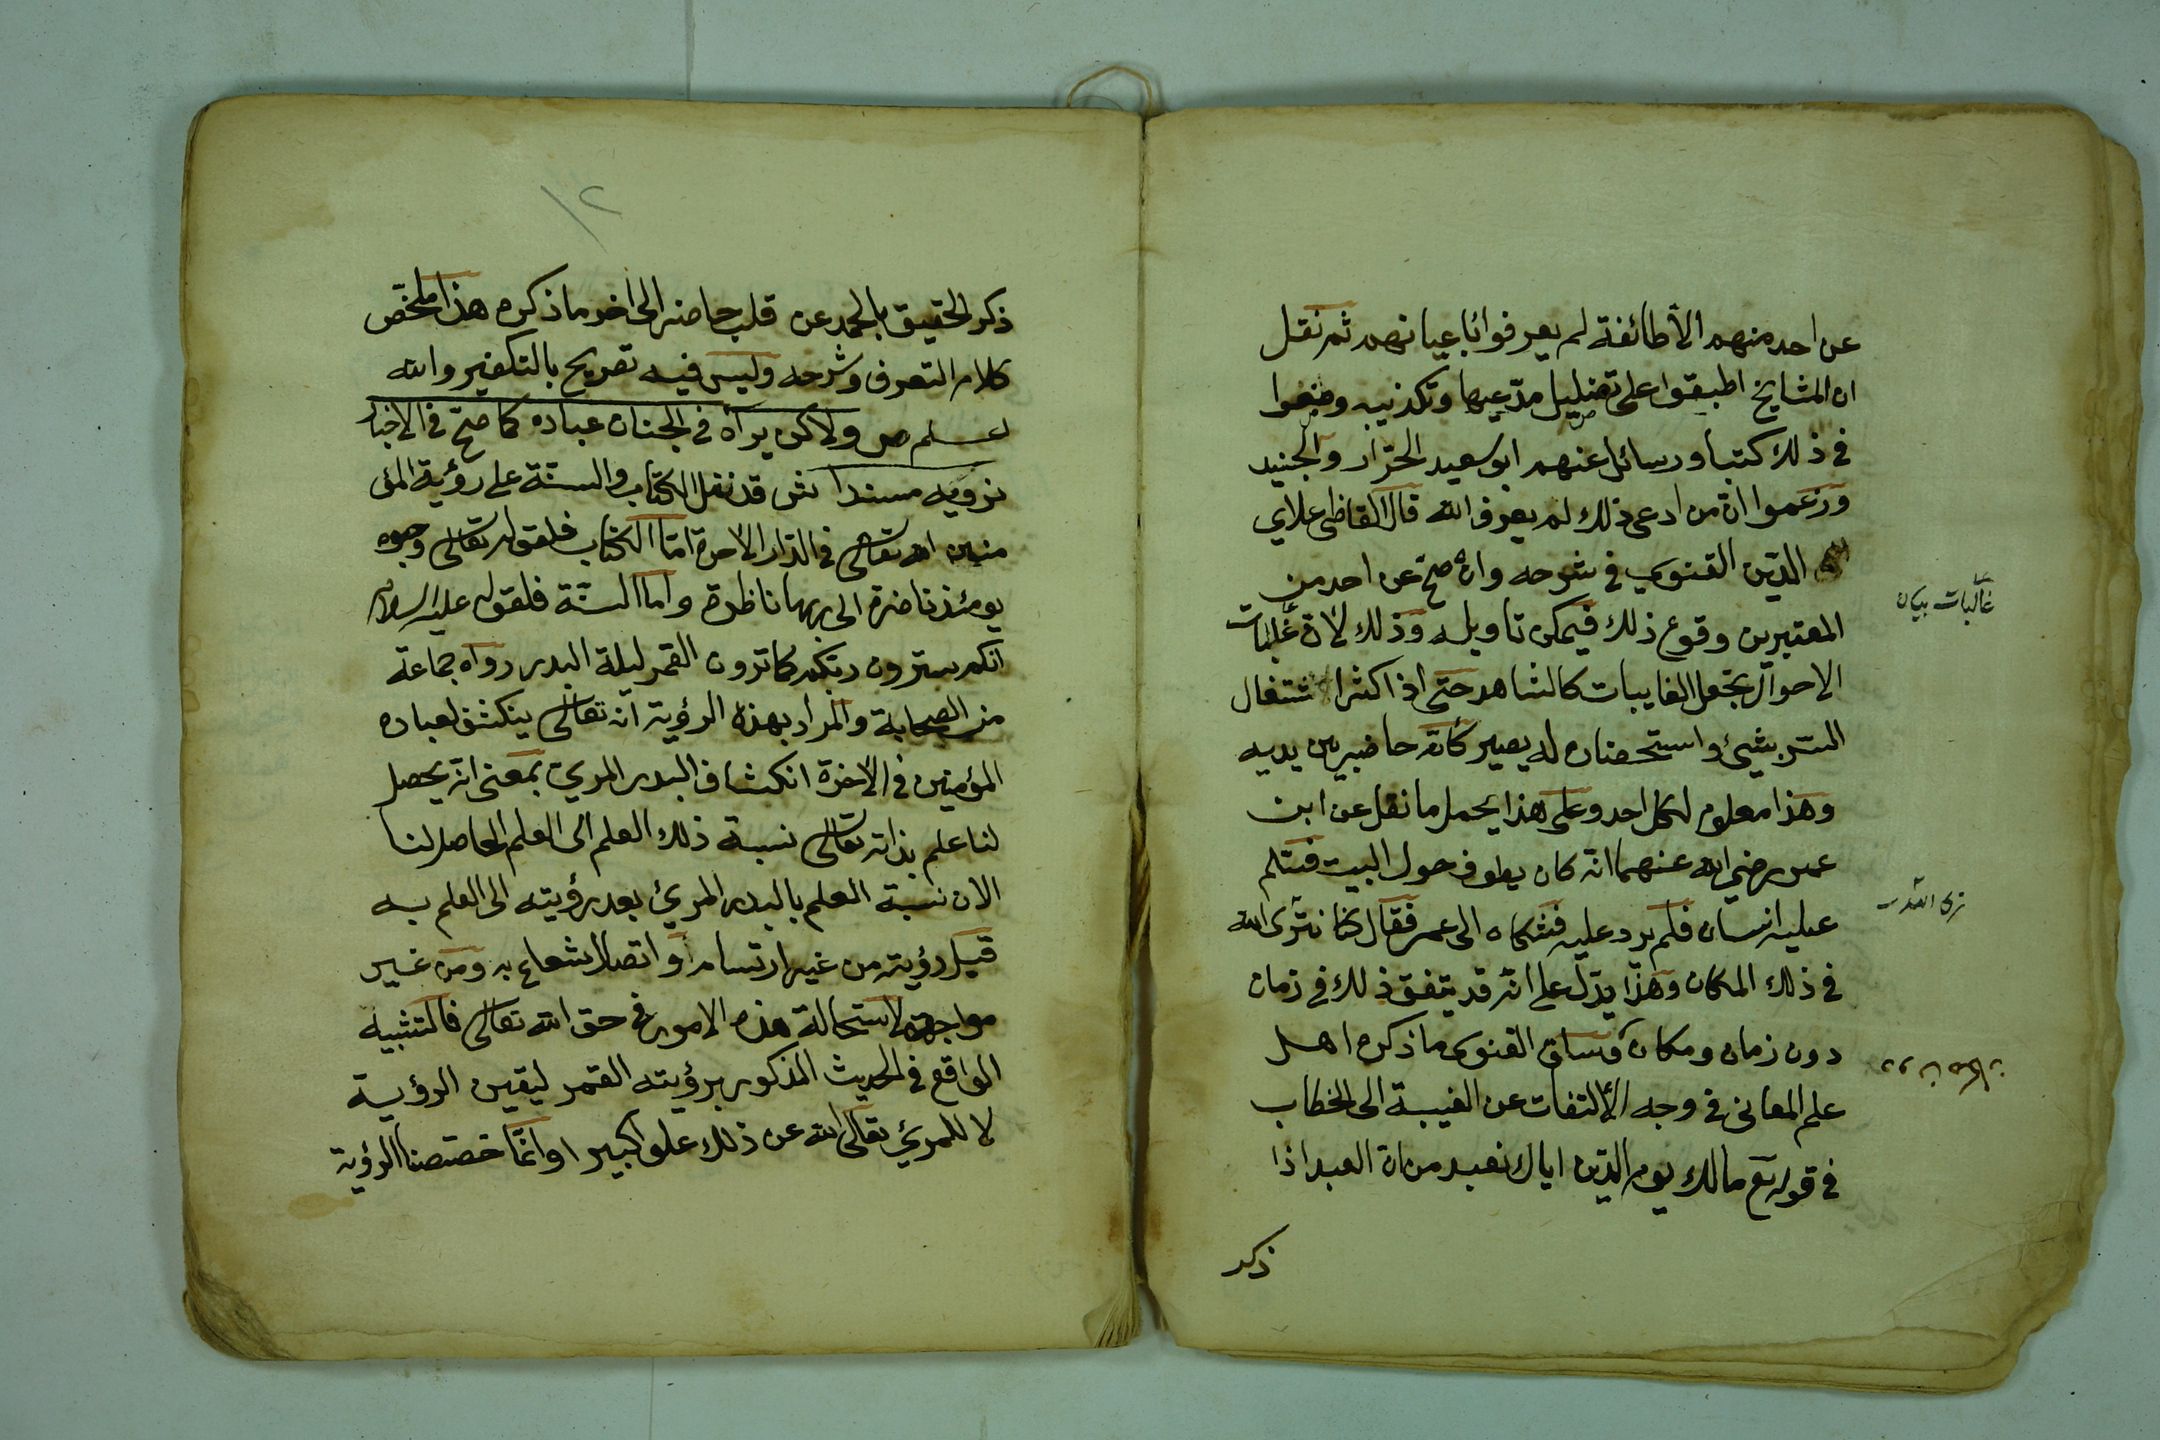 عن احد منهم الا طائفة لم يعرفوا باعيانهم ثم نقل
ان المشايخ اطبقوا على تضليل مدّعيها وتكذيبه وصنفوا
في ذلك كتبا ورسائل عنهم ابو سعيد الخزّار والجنيد
وزعموا ان من ادعى ذلك لم يعرف الله قال القاضى علاى
الدّين القنوي في شرحه وان صحّ عن احد من
المعتبرين وقوع ذلك فيمكن تاويله وذلك لانّ غلبات
الاحوال تجعل الغايبات كالشاهد حتى اذا كثر اشتغال
السّر بشيئ واستحضاره له يصير كانّه حاضر بين يديه
وهذا معلوم لكل احد وعلى هذا يحمل ما نقل عن ابن
عمر رضى الله عنهما انّه كان يطوف حول البيت فسلم
عليه انسان فلم يرد عليه فشكاه الى عمر فقال كنا نترّى الله
في ذلك المكان وهذا يدّل على انّه قد يتفق ذلك في زمان
دون زمان ومكان وساق القنوى ما ذكره اهل
علم المعانى في وجه الالتفات عن الغيبة الى الخطاب
في قوله تع مالك يوم الدّين اياك نعبد من انّ العبد اذا
ذكر
غالبات بيان
١٢
ذكر الحقيق بالحمد عن قلب حاضر الى اخر ما ذكره هذا ملخّص
كلام التعرف وشرحه وليس فيه تصريح بالتكفير والله
اعلم ص ولاكن يراه في الجنان عباده كما صحّ في الاخبار
نرويه مسندا ش قد نقل الكتاب والسنّة على رؤية المؤ
منين الله تعالى في الدّار الاخرة امّا الكتاب فلقوله تعالى وجوه
يومئذ ناضرة الى ربها ناظرة واما السنّة فلقوله عليه السلام
انكم سترون ربّكم كما ترون القمر ليلة البدر رواه جماعة
من الصحابة والمراد بهذه الرؤية انّه تعالى ينكشف لعباده
المؤمنين في الاخرة انكشاف البدر المريّ بمعنى انّه يحصل
لنا علم بذاته تعالى نسبة ذلك العلم الى العلم الحاصل لنا
الان نسبة العلم بالبدر المريّ بعد رؤيته الى العلم به
قبل رؤيته من غير ارتسام او اتصال شعاع به ومن غير
مواجهة لاستحالة هذه الامور في حق الله تعالى فالتشبيه
الواقع في الحديث المذكور برؤيته القمر ليقين الرؤية
لا للمريّ تعالى الله عن ذلك علوا كبيرا وانّما خصّصنا الرؤية